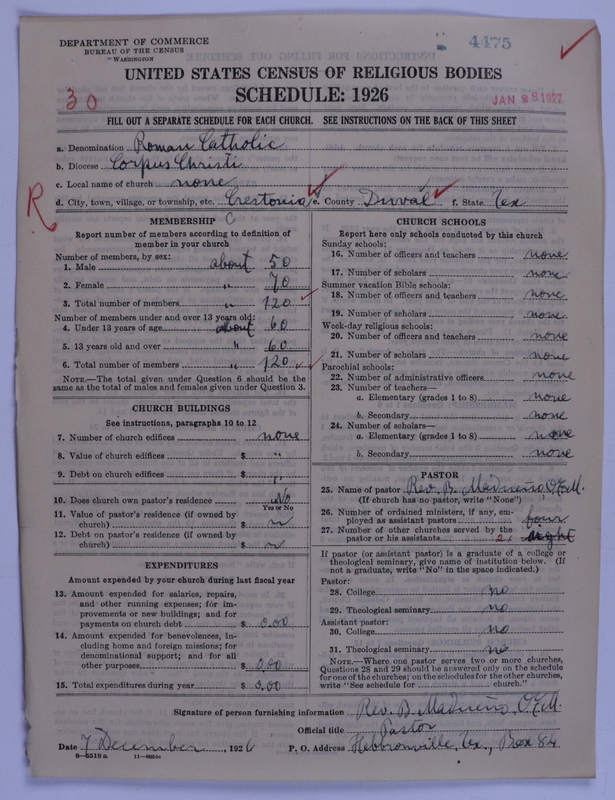 DEPARTMENT OF COMMERCE
BUREAU OF THE CENSUS
WASHINGTON
4475
UNITED STATES CENSUS OF RELIGIOUS BODIES
SCHEDULE: 1926
30
JAN 28 1927
FILL OUT A SEPARATE SCHEDULE FOR EACH CHURCH. SEE INSTRUCTIONS ON THE BACK OF THIS SHEET
a. Denomination Roman Catholic
b. Diocese Corpus Christi
c. Local name of church none
R
d. City, town, village, or township, etc. Crestonia e. County Duval f. State Tex
MEMBERSHIP C
Report number of members according to definition of
member in your church
Number of members, by sex:
1. Male about 50
2. Female " 70
3. Total number of members " 120
Number of members under and over 13 years old:
4. Under 13 years of age about 60
5. 13 years old and over " 60
6. Total number of members " 120
NOTE.—The total given under Question 6 should be the
same as the total of males and females given under Question 3.
CHURCH BUILDINGS
See instructions, paragraphs 10 to 12
7. Number of church edifices none
8. Value of church edifices $ "
9. Debt on church edifices $ "
10. Does church own pastor's residence No
Yes or No
11. Value of pastor's residence (if owned by
church) $
12. Debt on pastor's residence (if owned by
church) $
EXPENDITURES
Amount expended by your church during last fiscal year
13. Amount expended for salaries, repairs,
and other running expenses; for im-
provements or new buildings; and for
payments on church debt $ 0.00
14. Amount expended for benevolences, in-
cluding home and foreign missions; for
denominational support; and for all
other purposes $ 0.00
15. Total expenditures during year $ 0.00
CHURCH SCHOOLS
Report here only schools conducted by this church
Sunday schools:
16. Number of officers and teachers none
17. Number of scholars none
Summer vacation Bible schools:
18. Number of officers and teachers none
19. Number of scholars none
Week-day religious schools:
20. Number of officers and teachers none
21. Number of scholars none
Parochial schools:
22. Number of administrative officers none
23. Number of teachers—
a. Elementary (grades 1 to 8) none
b. Secondary none
24. Number of scholars—
a. Elementary (grades 1 to 8) none
b. Secondary none
PASTOR
25. Name of pastor Rev. B. Madueño O.F.M.
(If church has no pastor, write "None")
26. Number of ordained ministers, if any, em-
ployed as assistant pastors four
27. Number of other churches served by the
pastor or his assistants 21 eight
If pastor (or assistant pastor) is a graduate of a college or
theological seminary, give name of institution below. (If
not a graduate, write "No" in the space indicated.)
Pastor:
28. College no
29. Theological seminary no
Assistant pastor:
30. College no
31. Theological seminary no
NOTE.—Where one pastor serves two or more churches,
Questions 28 and 29 should be answered only on the schedule
for one of the churches; on the schedules for the other churches,
write "See schedule for church."
Signature of person furnishing information Rev. B. Madueño, O.F.M.
Official title Pastor
Date 7 December, 1926 P. O. Address Hebbronville, Tex., Box 84
8—5519a 11—9051c